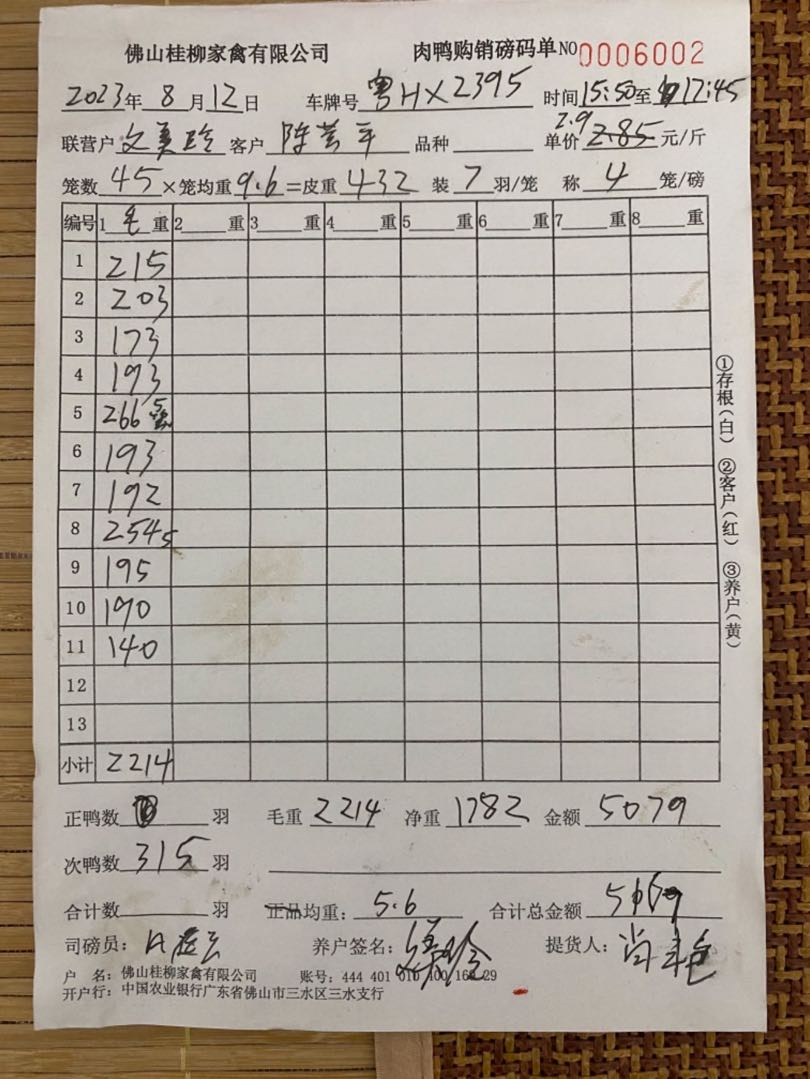 佛山桂柳家禽有限公司 肉鸭购销磅码单 NO 0006002
2023年 8 月 12 日 车牌号 粤HX2395 时间 15:50至 17:45
联营户 文英玲 客户 品种 单价 2.9 元/斤
笼数 45 ×笼均重 9.6 =皮重 432 装 7 羽/笼 称 4 笼/磅
编号 1 毛 重 2 重 3 重 4 重 5 重 6 重 7 重 8 重
1 215
2 203
3 173
4 193
5 266 5
6 193
7 192
8 254 5
9 195
10 190
11 140
12
13
小计 2214
①存根(白) ②客户(红) ③养户(黄)
正鸭数 羽 毛重 2214 净重 1782 金额 5079
次鸭数 315 羽
合计数 羽 正品均重: 5.6 合计总金额
司磅员: 养户签名: 提货人:
户 名: 佛山桂柳家禽有限公司 账号: 444 401 010 400 29
开户行: 中国农业银行广东省佛山市三水区三水支行